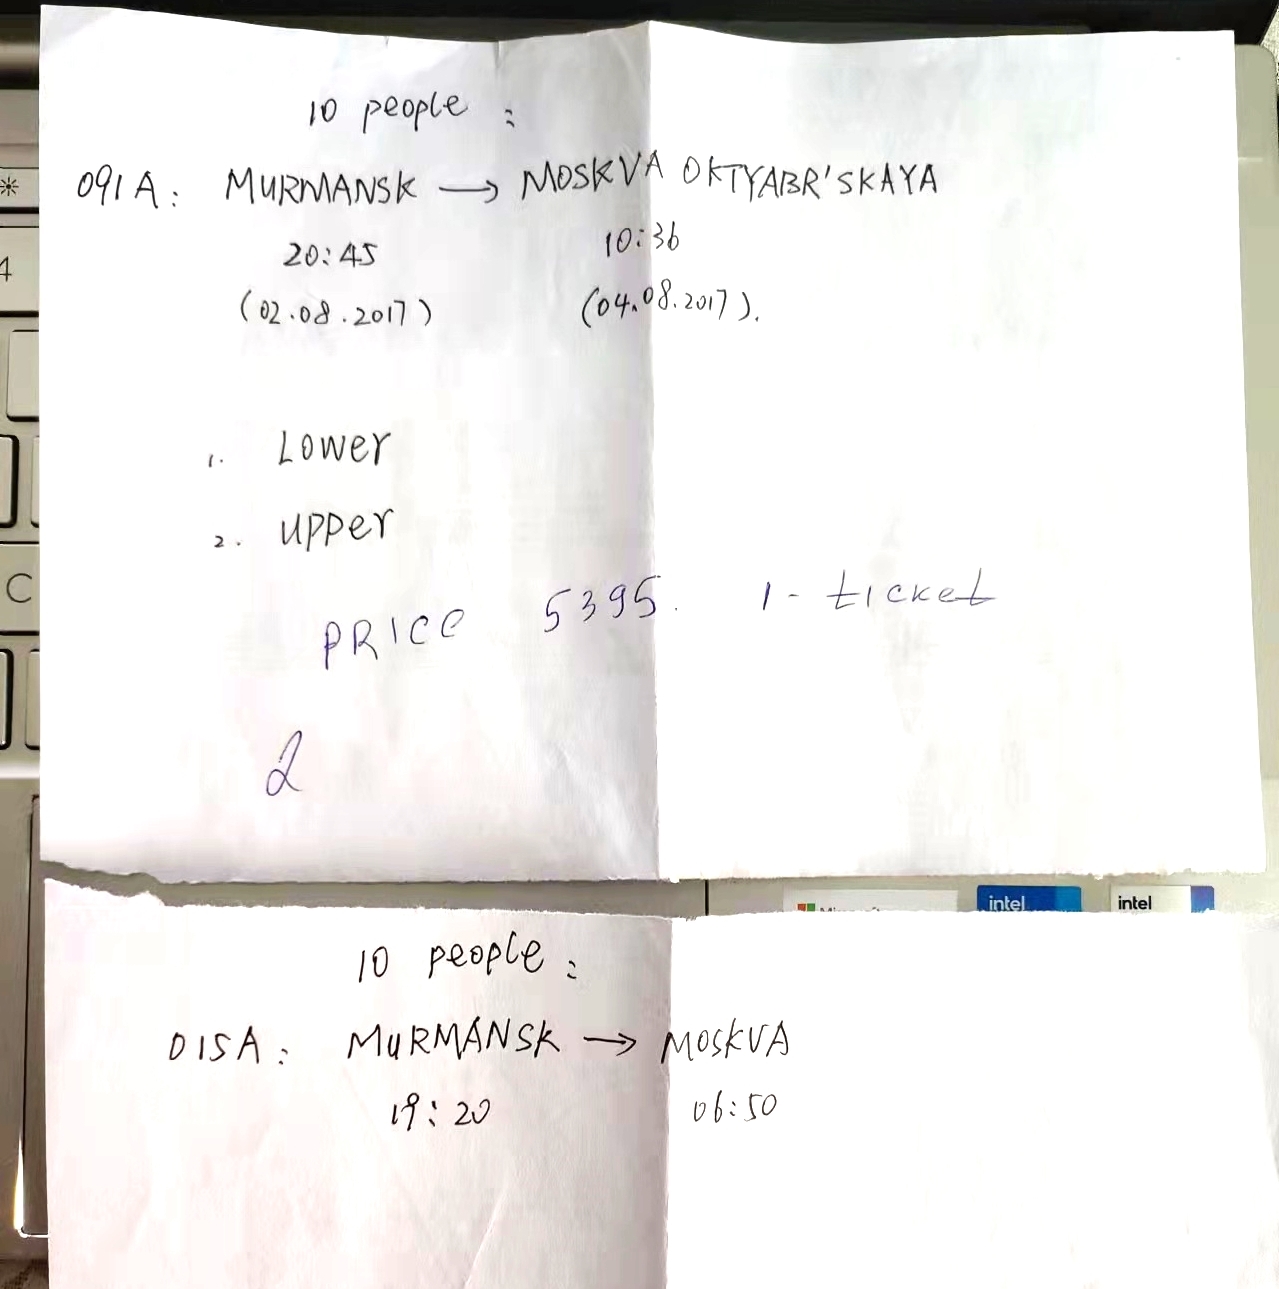 10 people :
091A: MURMANSK → MOSKVA OKTYABR'SKAYA
20:45 10:36
(02.08.2017) (04.08.2017).
1. Lower
2. upper
PRICE 5395. 1- ticket
2
intel intel
10 people :
015A: MURMANSK → MOSKVA
19:20 06:50
4
C